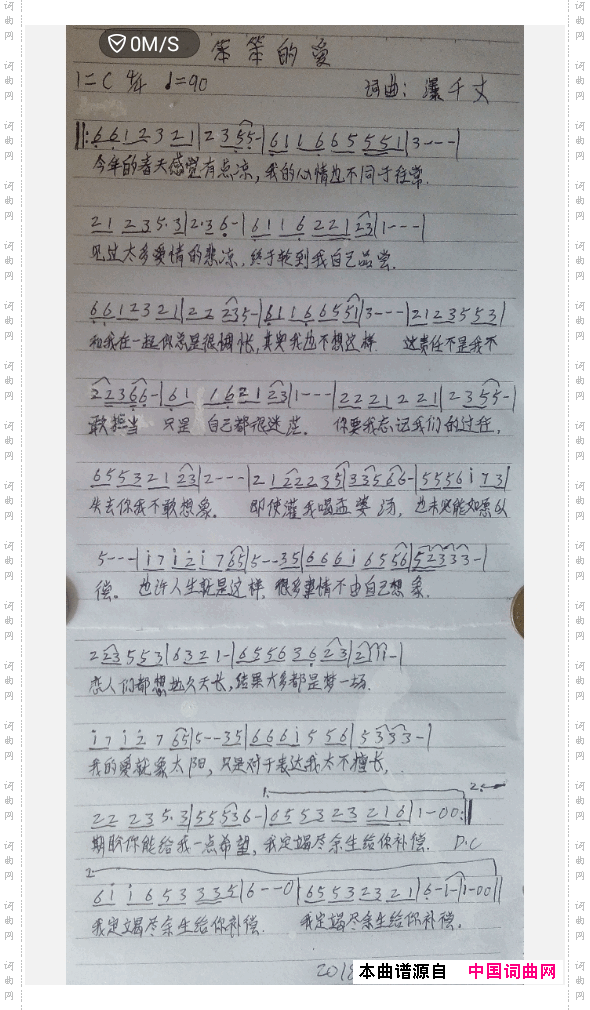 0M/S
笨笨的爱
1=C 4/4 ♩=90
词曲：瀑千丈
‖: 6 6 1 2 3 2 1 | 2 3 5 5 - | 6 1 1 6 6 5 5 5 1 | 3 - - - |
今年的春天感觉有点凉，我的心情也不同于往常.
2 1 2 3 5 · 3 | 2 · 3 6 - | 6 1 1 6 2 2 1 2 3 | 1 - - - |
见过太多爱情的悲凉．终于轮到我自己品尝.
6 6 1 2 3 2 1 | 2 2 2 3 5 - | 6 1 1 6 6 5 5 1 | 3 - - - | 2 1 2 3 5 5 3 |
和我在一起你总是很惆怅，其实我也不想这样 这责任不是我不
2 2 3 6 6 - | 6 1 1 6 2 1 2 3 | 1 - - - | 2 2 2 1 2 2 1 | 2 3 5 5 - |
敢担当 只是 自己都很迷茫． 你要我忘记我们的过往，
6 5 5 3 2 1 2 3 | 2 - - - | 2 1 2 2 2 3 5 | 3 3 5 6 6 - | 5 5 5 6 i 7 3 |
失去你我不敢想象． 即使灌我喝孟婆汤，也未必能如愿以
5 - - - | i 7 i 2 i 7 6 5 | 5 - - 3 5 | 6 6 6 i 6 5 5 6 | 5 2 3 3 3 - |
偿。也许人生就是这样．很多事情不由自己想象．
2 2 3 5 5 3 | 6 3 2 1 - | 6 5 5 6 3 6 2 3 | 2 1 1 - |
恋人们都想地久天长，结果大多都是梦一场．
i 7 i 2 7 6 5 | 5 - - 3 5 | 6 6 6 i 5 5 6 | 5 3 3 3 - |
我的爱就象太阳，只是对于表达我太不擅长，
1. 2.
2 2 2 3 5 · 3 | 5 5 5 3 6 - | 6 5 5 3 2 3 2 1 6 | 1 - 0 0 :‖
期盼你能给我一点希望，我定竭尽余生给你补偿． D.C
2.
6 i i 6 5 3 3 3 5 | 6 - - 0 | 6 5 5 3 2 3 2 1 | 6 - 1 - | 1 - 0 0 ‖
我定竭尽余生给你补偿． 我定竭尽余生给你补偿．
2018
本曲谱源自 中国词曲网
词曲网